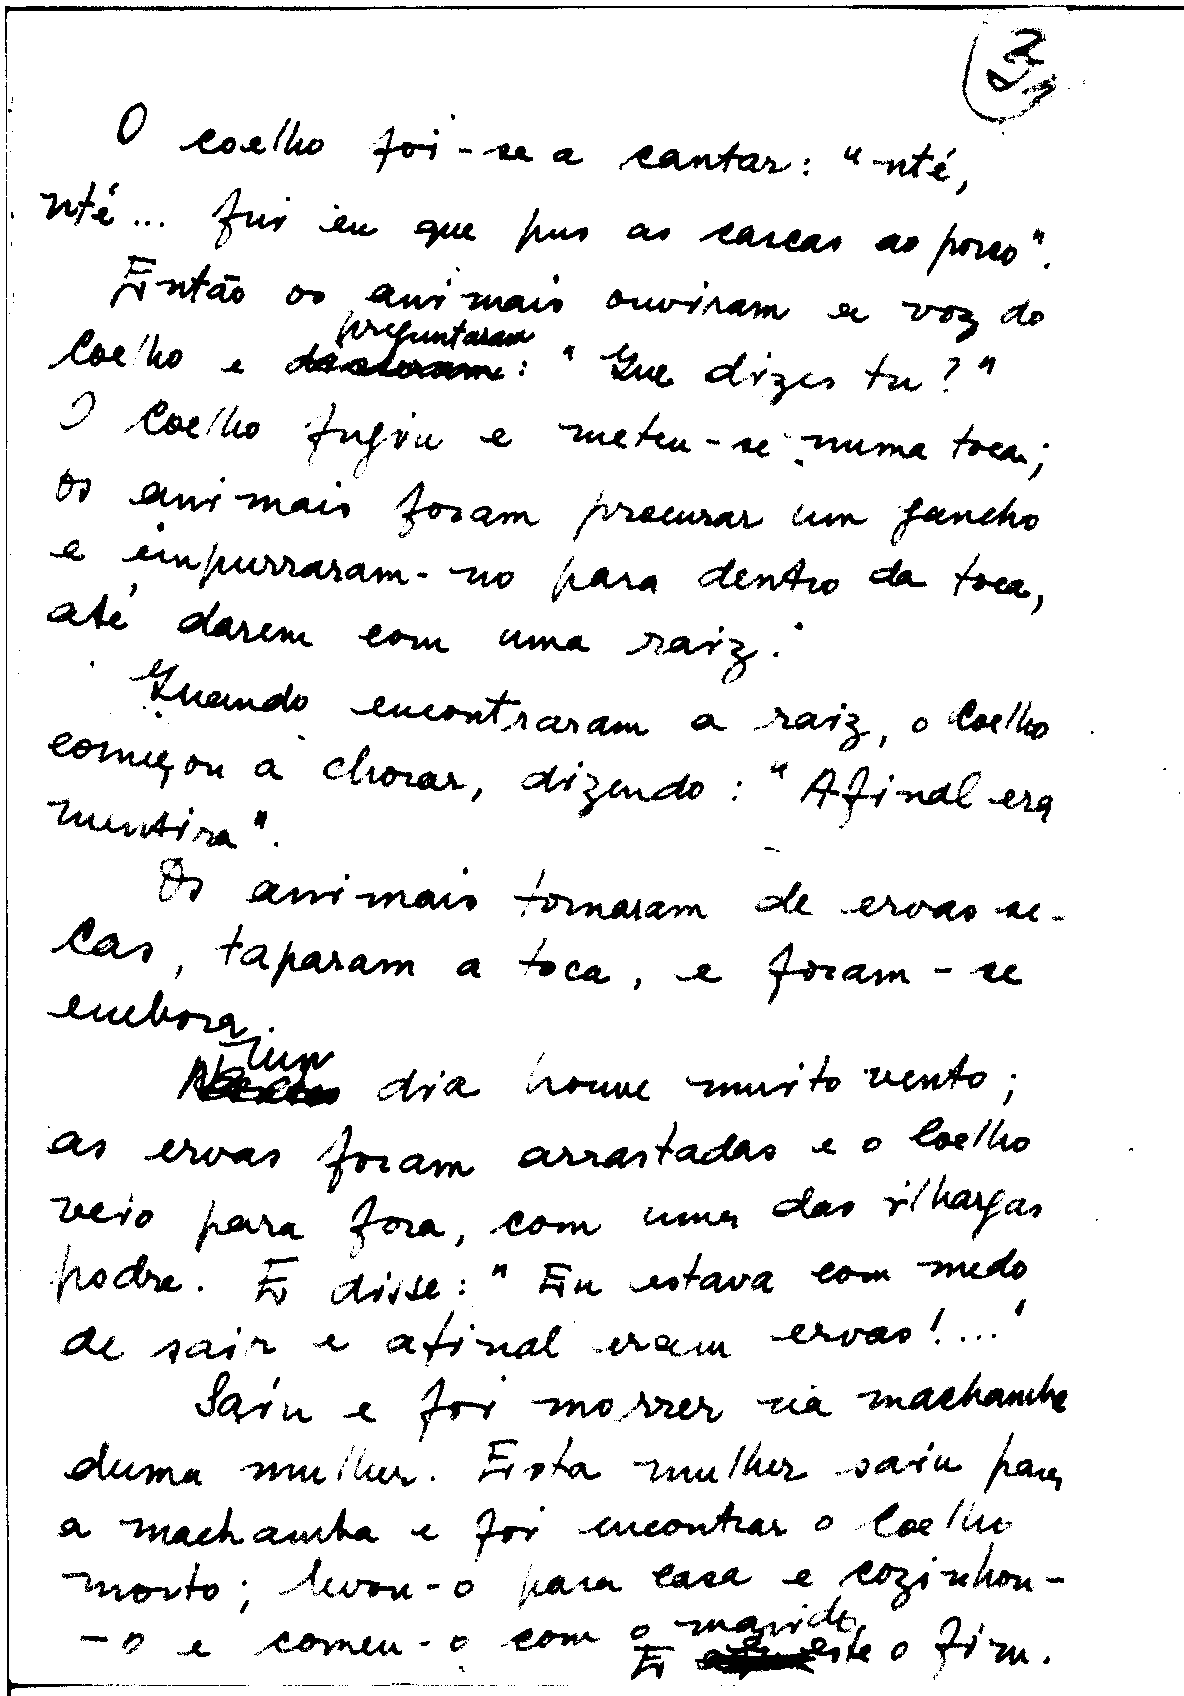 3
O coelho foi-se a cantar: "nté,
nté... fui eu que pus as cascas ao porco".
Então os animais ouviram a voz do
Coelho e preguntaram: "Que dizes tu?"
O Coelho fugiu e meteu-se numa toca;
os animais foram procurar um gancho
e empurraram-no para dentro da toca,
até darem com uma raiz.
Quando encontraram a raiz, o Coelho
começou a chorar, dizendo: "Afinal era
mentira".
Os animais tomaram de ervas se-
cas, taparam a toca, e foram-se
embora.
Num dia houve muito vento;
as ervas foram arrastadas e o Coelho
veio para fora, com uma das ilhargas
podre. E disse: "Eu estava com medo
de sair e afinal eram ervas!..."
Saíu e foi morrer na machamba
duma mulher. Esta mulher saiu para
a machamba e foi encontrar o Coelho
morto; levou-o para casa e cozinhou-
-o e comeu-o com o marido.
E este o fim.